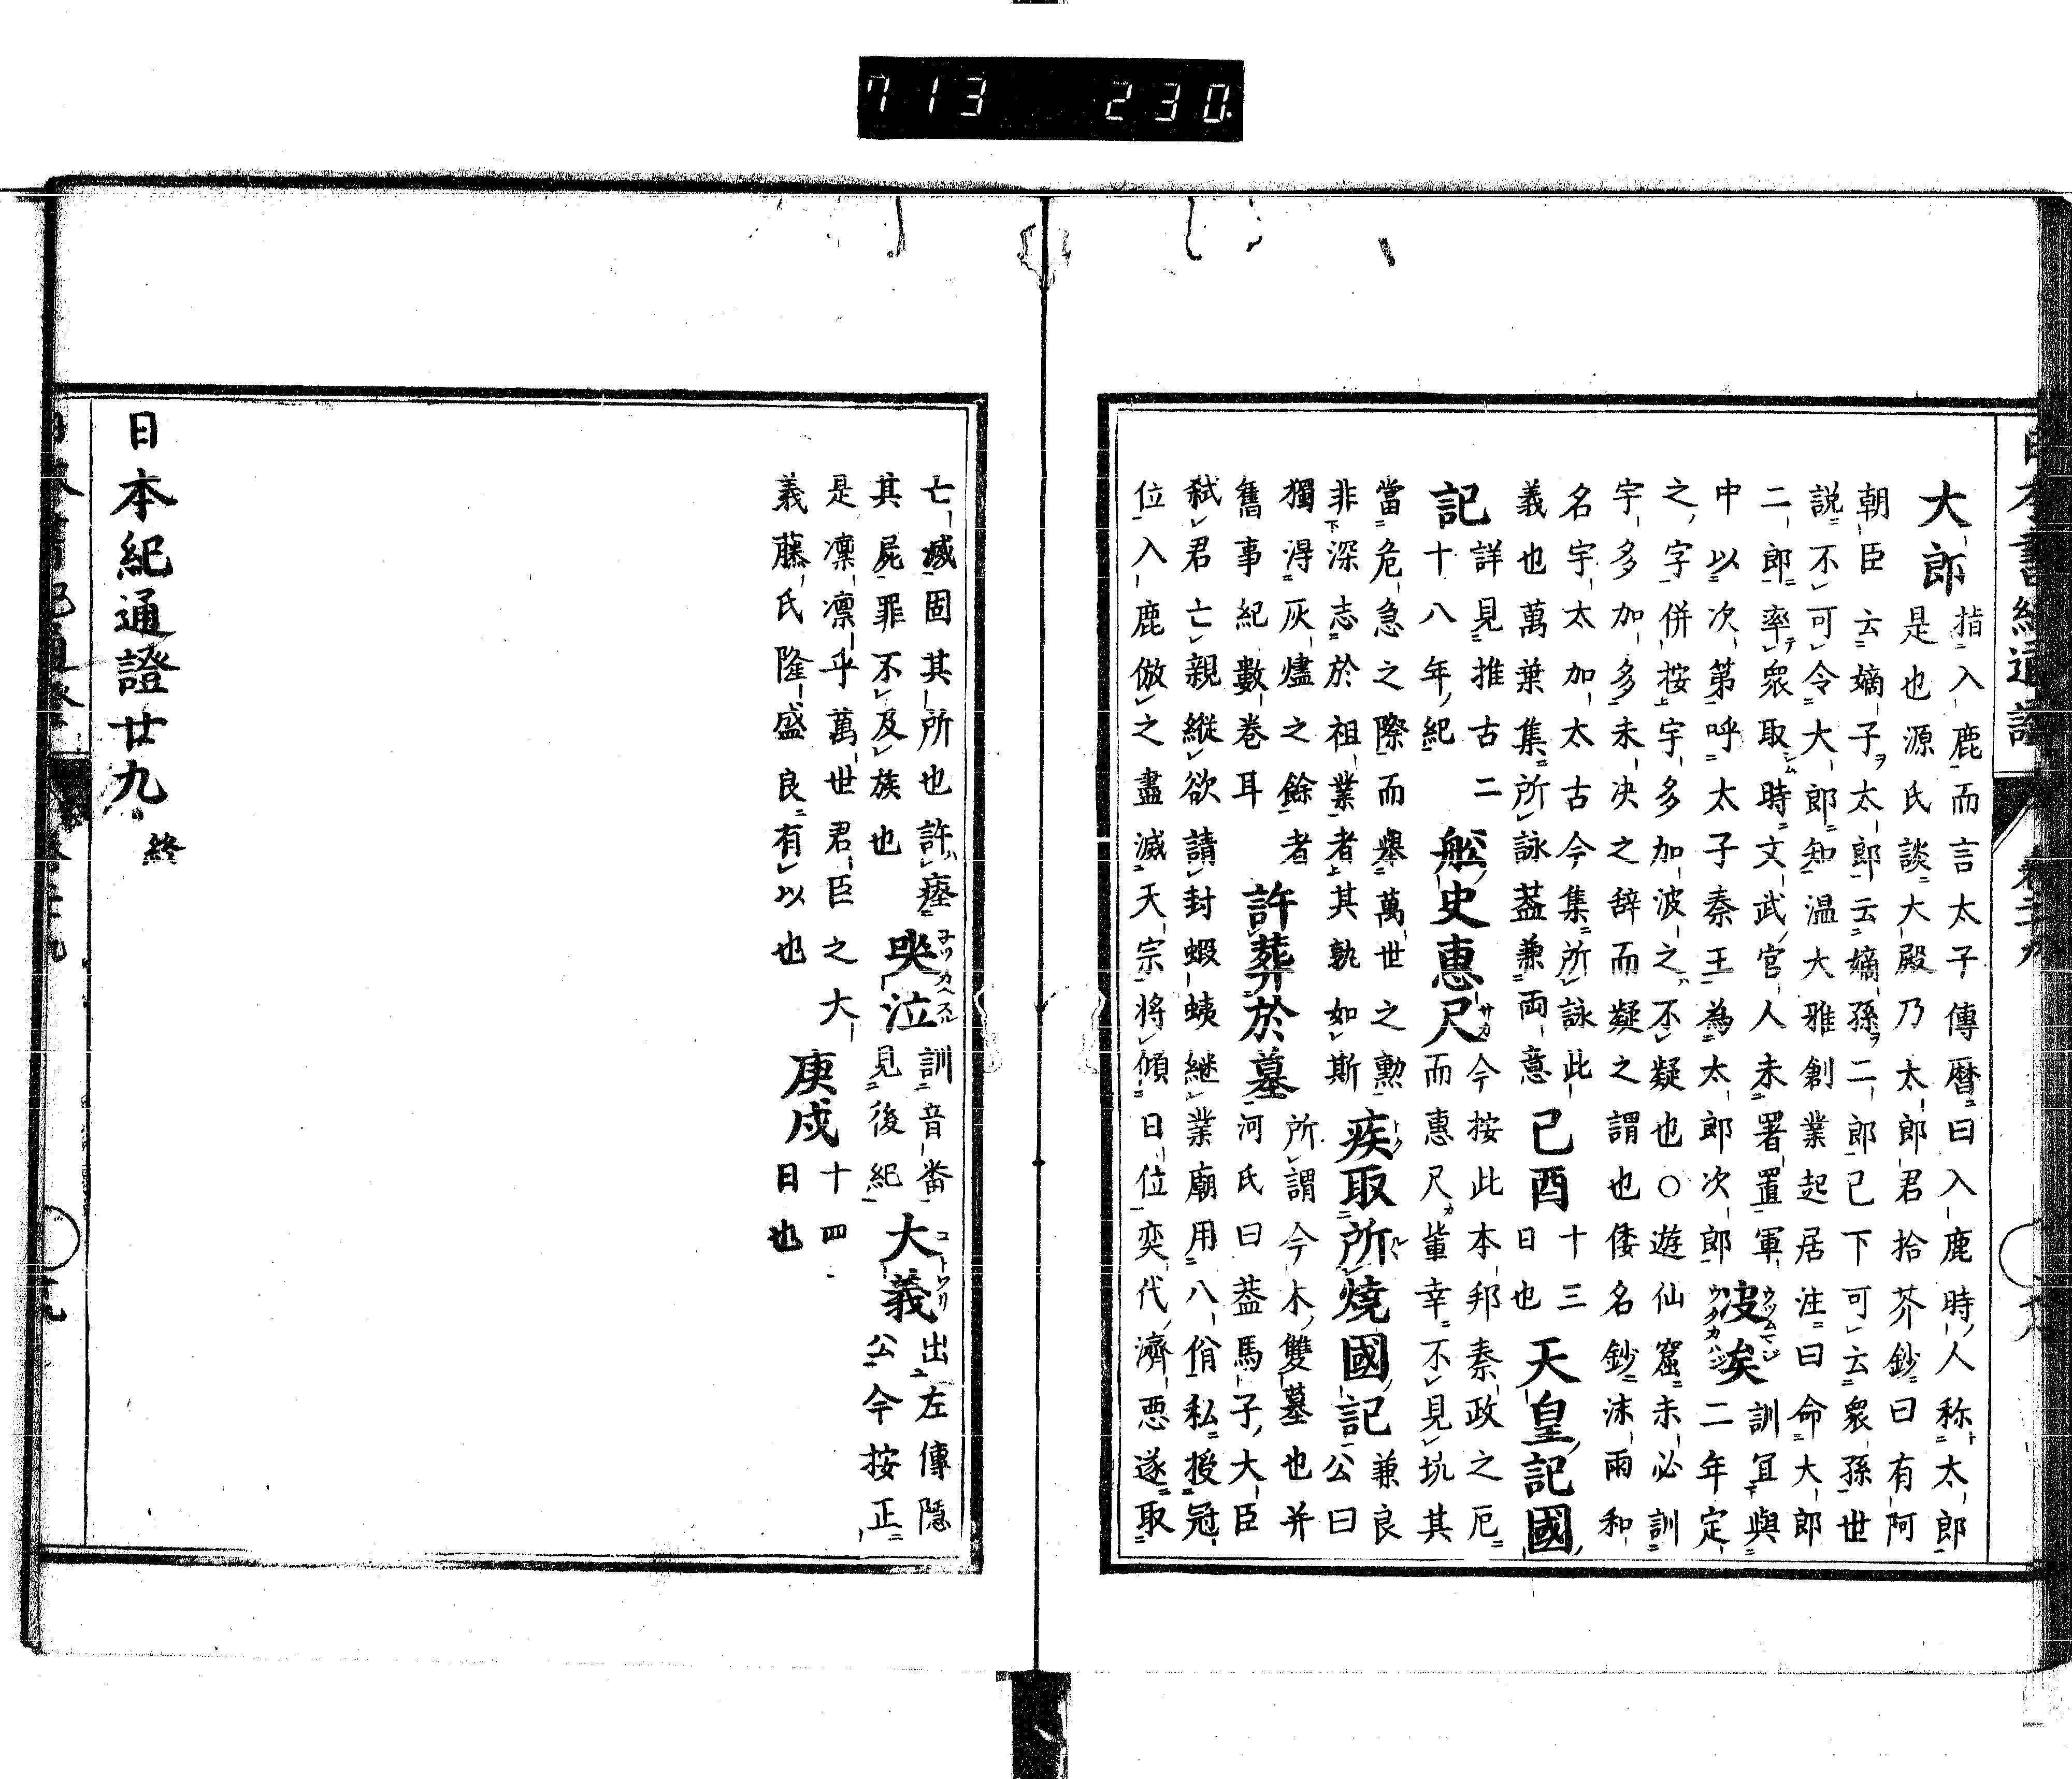 大郎
指入鹿而言太子傳暦曰入鹿時人称太郎
是也源氏談大殿乃太郎君拾芥鈔曰有阿
朝臣云嫡子太郎云嫡孫二郎已下可云衆孫世
説不可令大郎知温大雅創業起居注曰命大郎
二郎率衆取時文武官人未署置軍
中以次第呼太子秦王為太郎次郎
决矣
訓宜與
二年定
之字併按宇多加波之不疑也〇遊仙窟未必訓
宇多加多未决之辞而疑之謂也倭名鈔沫雨和
名宇太加太古今集所詠此
義也萬葉集所詠葢兼両意
己酉
十三
日也
天皇記國
記
詳見推古二
十八年紀
船史惠尺
今按此本邦秦政之厄
而惠尺輩幸不見坑其
當危急之際而擧萬世之勲
非深志於祖業者其孰如斯
疾取所燒國記
兼良
公曰
獨得灰燼之餘者
舊事紀數巻耳
許葬於墓
所謂今木雙墓也并
河氏曰葢馬子大臣
弑君亡親縱欲請封蝦蛦継業廟用八佾私授冠
位入鹿倣之盡滅天宗将傾日位奕代濟悪遂取
亡滅固其所也許瘞
其屍罪不及族也
哭泣
訓音畨
見後紀
大義
出左傳隠
公今按正
是凛凛乎萬世君臣之大
義藤氏隆盛良有以也
庚戌
十四
日也
日本紀通證廿九 終